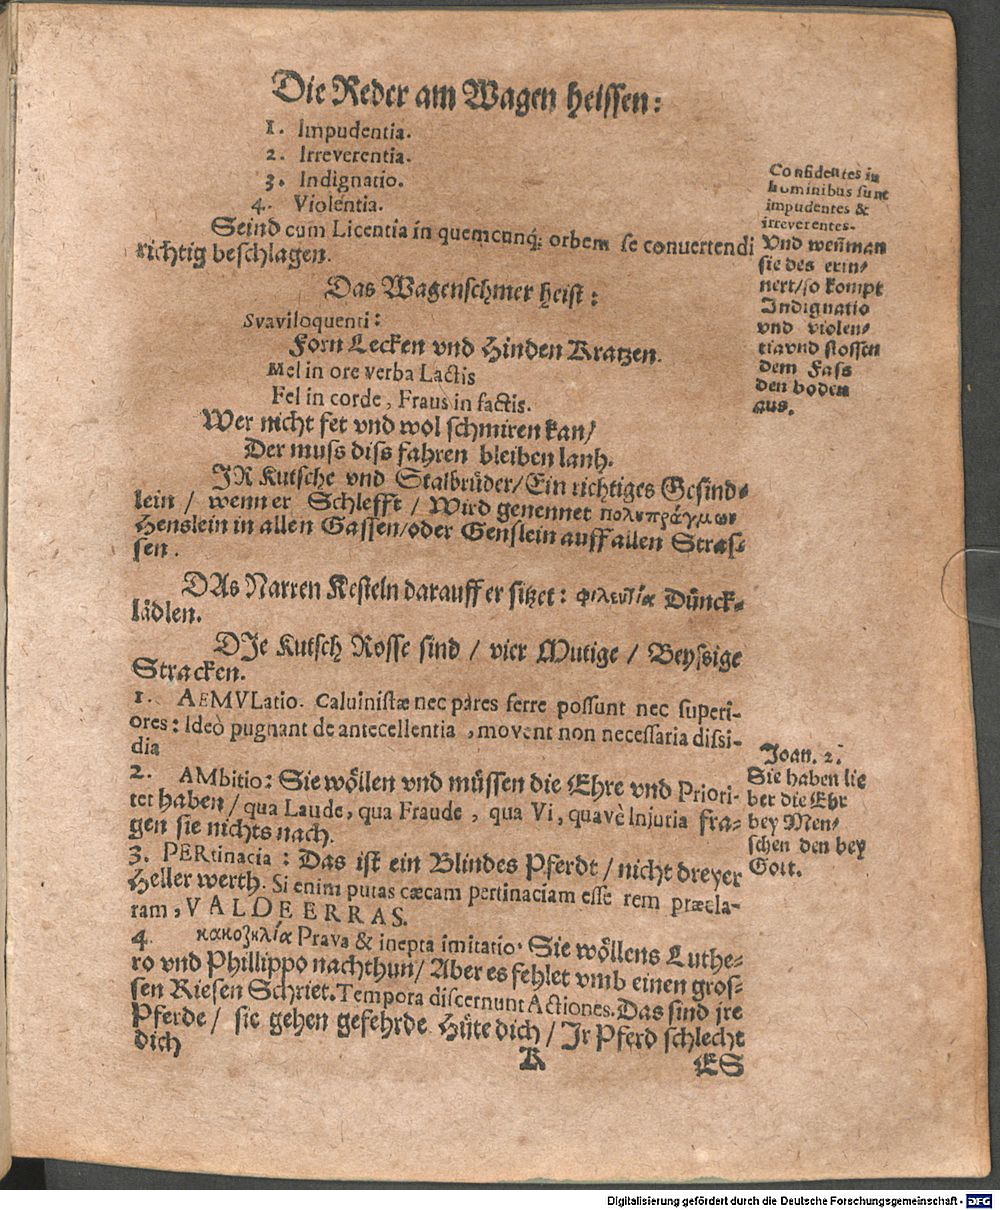 Die Reder am Wagen heissen:
1. Impudentia.
2. Irreverentia.
3. Indignatio.
4. Violentia.
Seind cum Licentia in quemcunq; orbem se convertendi
richtig beschlagen.
Das Wagenschmer heist:
Svaviloquenti:
Forn Lecken vnd Hinden Kratzen.
Mel in ore verba Lactis
Fel in corde, Fraus in factis.
Wer nicht fet vnd wol schmiren kan/
Der muss diss fahren bleiben lanh.
JR Kutsche vnd Stalbrüder/Ein richtiges Gesind-
lein / wenn er Schlefft / Wird genennet πολυπράγμων
Henslein in allen Gassen/oder Genslein auff allen Stras-
sen.
DAs Narren Kesteln darauff er sitzet: φιλαυτία Dünck-
lädlen.
DJe Kutsch Rosse sind / vier Mutige / Beyssige
Stracken.
1. AEMVLatio. Caluinistæ nec pares ferre possunt nec superi-
ores: Ideò pugnant de antecellentia, movent non necessaria dissi-
dia
2. AMbitio: Sie wöllen vnd müssen die Ehre vnd Priori-
tet haben / qua Laude, qua Fraude, qua Vi, quavè Injuria fra-
gen sie nichts nach.
3. PERtinacia: Das ist ein Blindes Pferdt / nicht dreyer
Heller werth. Si enim putas cæcam pertinaciam esse rem præcla-
ram, VALDE ERRAS.
4. κακοζηλία Prava & inepta imitatio. Sie wöllens Luthe-
ro vnd Phillippo nachthun/ Aber es fehlet vmb einen gros-
sen Riesen Schriet. Tempora discernunt Actiones. Das sind jre
Pferde / sie gehen gefehrde. Hüte dich / Jr Pferd schlecht
dich
K
ES
Confidentes in
hominibus sunt
impudentes &
irreverentes.
Vnd weñ man
sie des erin/
nert/so kompt
Indignatio
vnd violen/
tia vnd stossen
dem Fass
den boden
aus.
Joan. 2.
Sie haben lie
ber die Ehr
bey Men/
schen den bey
Gott.
Digitalisierung gefördert durch die Deutsche Forschungsgemeinschaft - DFG